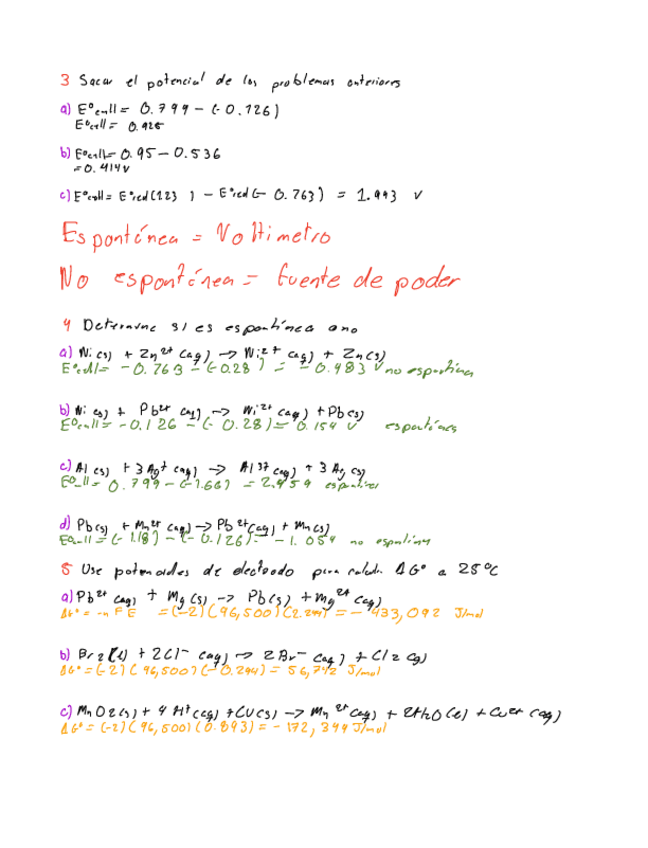 3 Sacar el potencial de los problemas anteriores
a) E°cell = 0.799 - (-0.126)
E°cell = 0.925
b) E°cell = 0.95 - 0.536
= 0.414 v
c) E°cell = E°red (1.23 ) - E°red (- 0.763) = 1.993 v
Espontánea = Voltimetro
No espontánea = fuente de poder
4 Determine si es espontánea o no
a) Ni (s) + Zn2+ (aq) → Ni2+ (aq) + Zn (s)
E°cell = -0.763 - (-0.28 ) = -0.483 v no espontánea
b) Ni (s) + Pb2+ (aq) → Ni2+ (aq) + Pb (s)
E°cell = -0.126 - (- 0.28) = 0.154 v espontánea
c) Al (s) + 3 Ag+ (aq) → Al3+ (aq) + 3 Ag (s)
E°cell = 0.799 - (-1.66) = 2.459 espontánea
d) Pb (s) + Mn2+ (aq) → Pb2+ (aq) + Mn (s)
E°cell = (- 1.18) - (- 0.126) = - 1.054 no espontánea
5 Use potenciales de electrodo para calcular ΔG° a 25°C
a) Pb2+ (aq) + Mg (s) → Pb (s) + Mg2+ (aq)
ΔG° = -n F E = (-2) (96,500) (2.244) = - 433,092 J/mol
b) Br2 (l) + 2Cl- (aq) → 2Br- (aq) + Cl2 (g)
ΔG° = (-2) (96,500) (- 0.294) = 56,742 J/mol
c) MnO2 (s) + 4 H+ (aq) + Cu (s) → Mn2+ (aq) + 2H2O (l) + Cu2+ (aq)
ΔG° = (-2) (96,500) (0.893) = - 172,349 J/mol